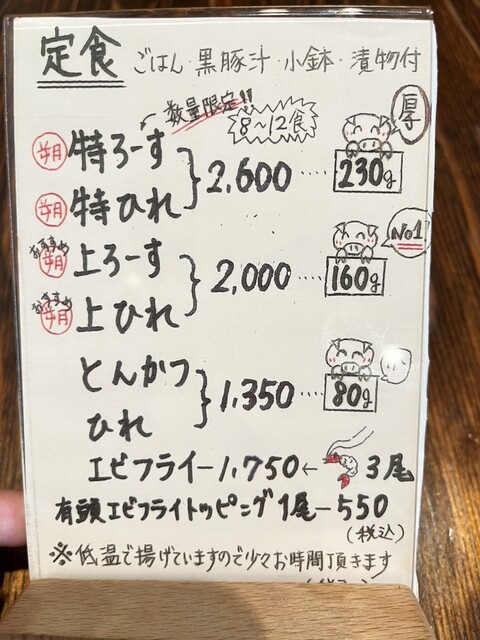 定食 ごはん・黒豚汁・小鉢・漬物付
数量限定!!
8~12食
厚
朔 特ろーす
朔 特ひれ
2,600 ···· 230g
おすすめ 朔 上ろーす
おすすめ 朔 上ひれ
2,000 ···· 160g
No1
とんかつ
ひれ
1,350 ···· 80g
エビフライ-1,750← 3尾
有頭エビフライトッピング1尾-550
(税込)
※低温で揚げていますので少々お時間頂きます